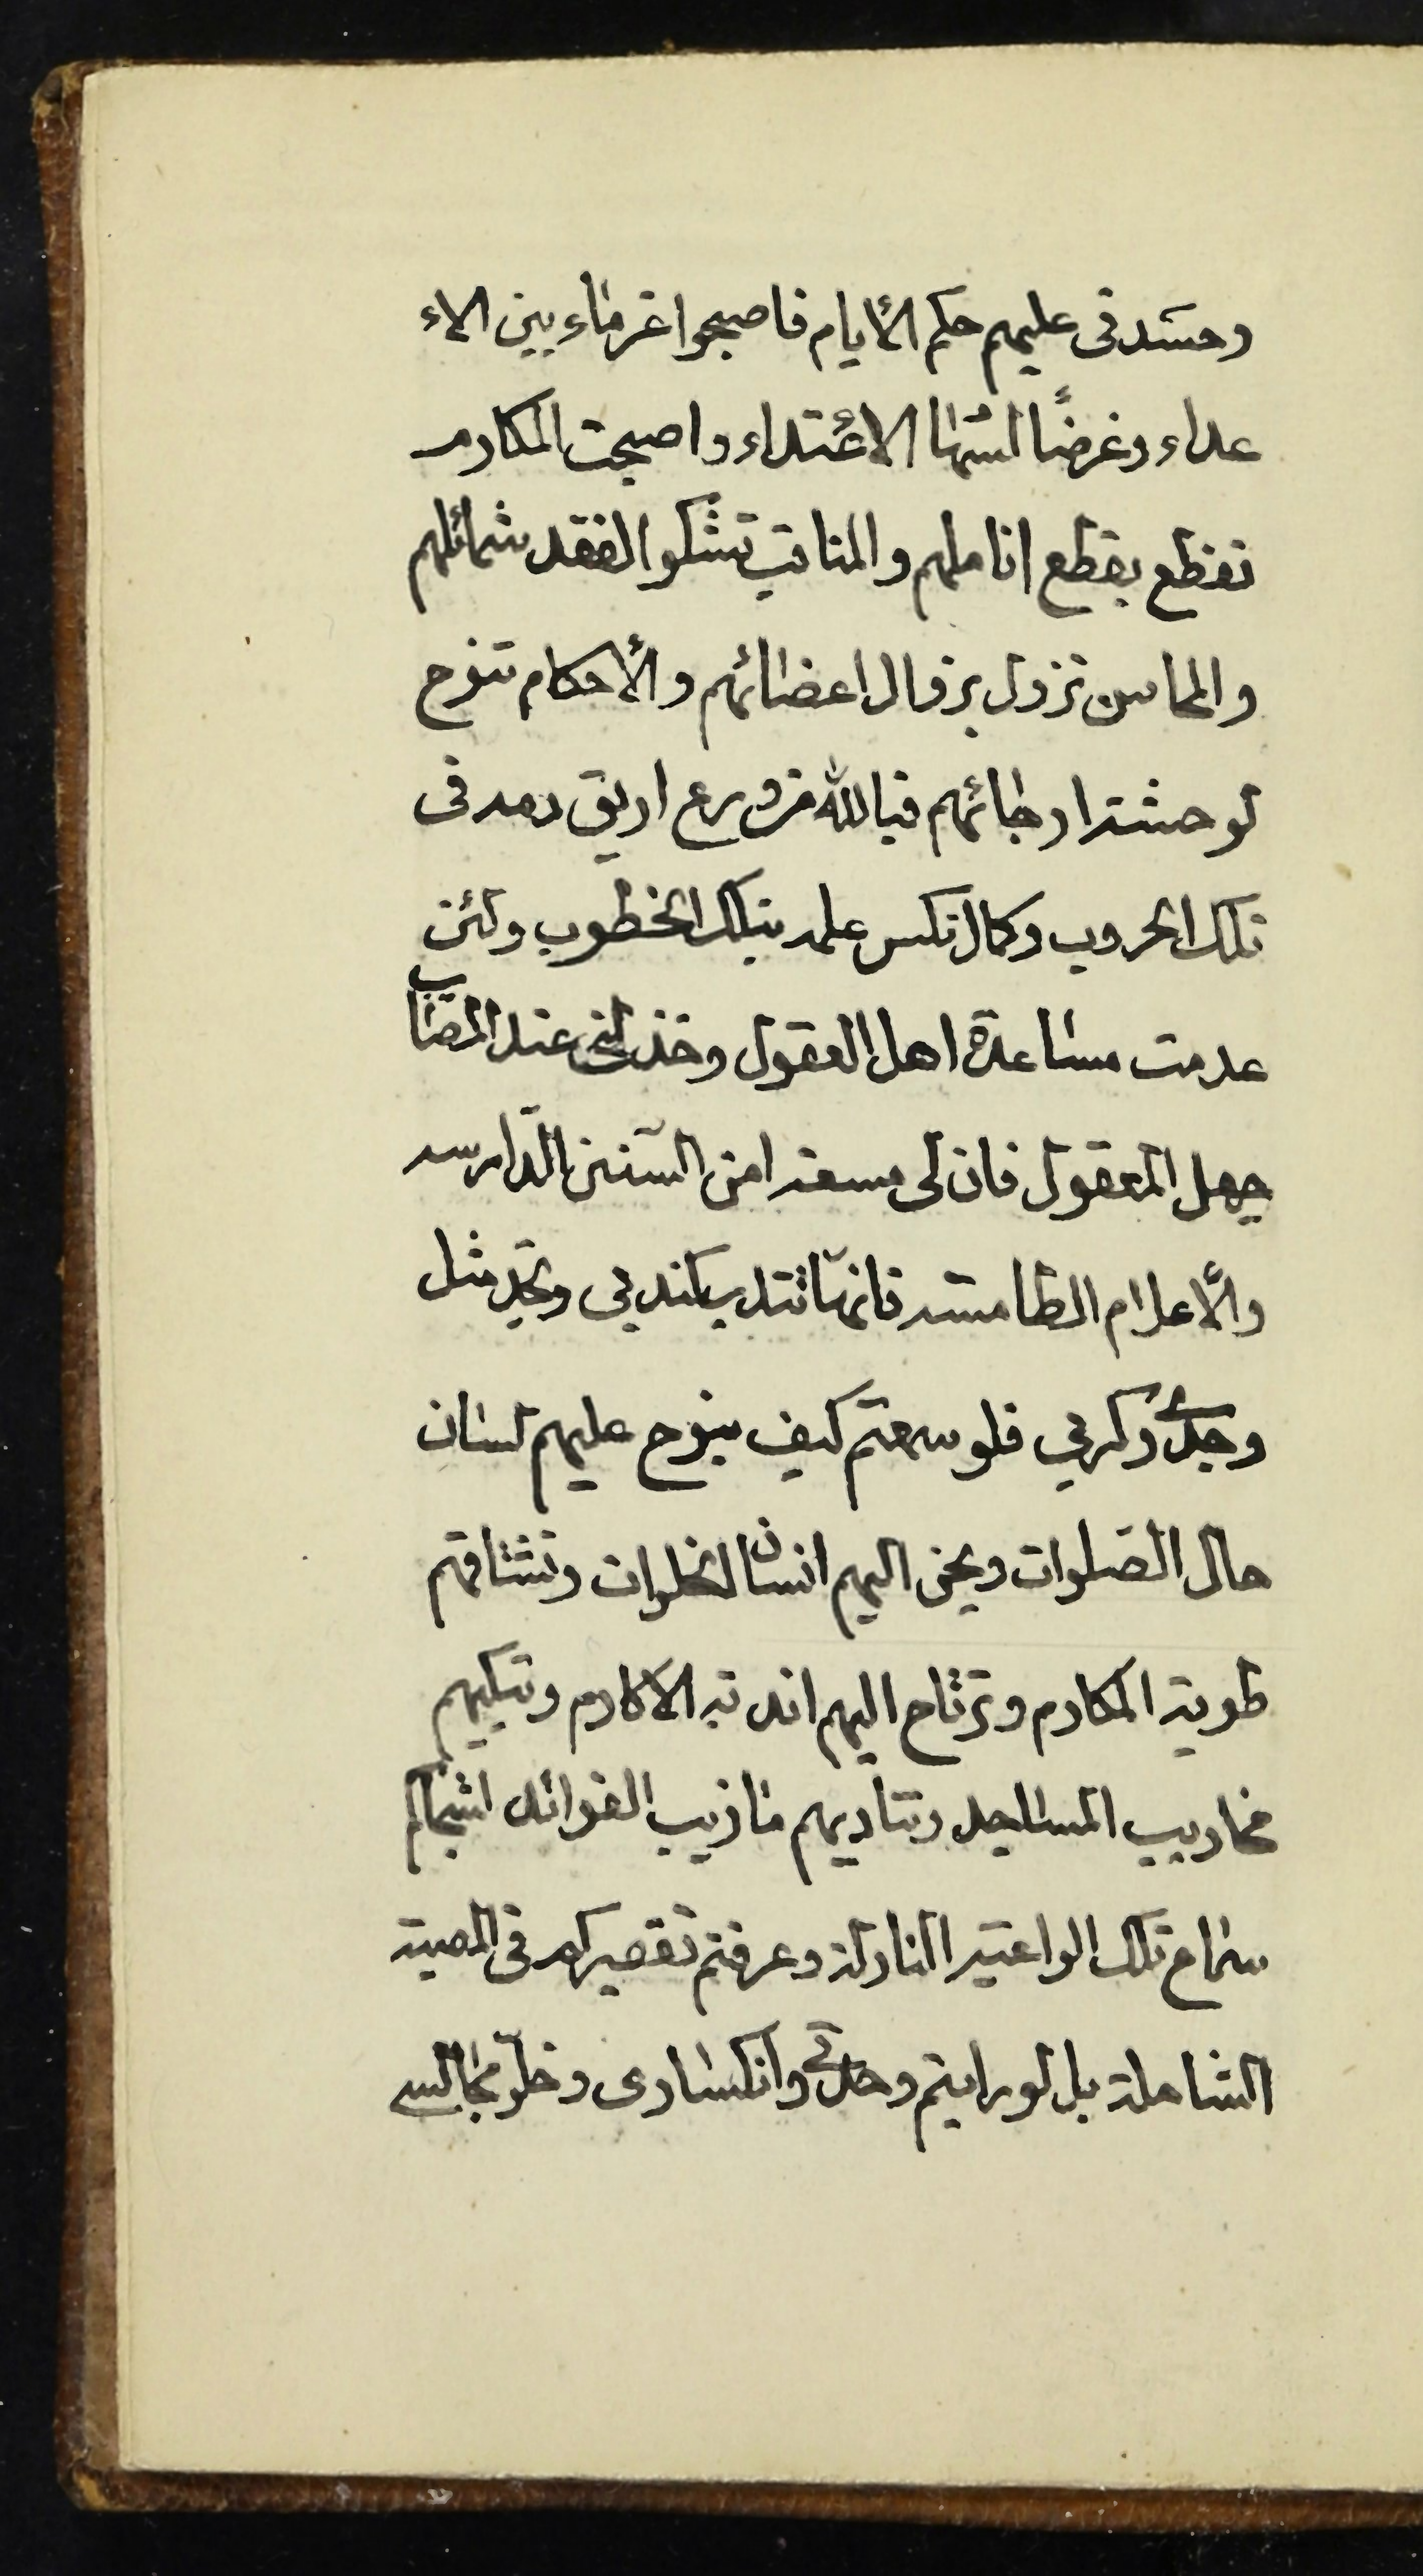 وحشدنى عليهم حكم الأيام فاصبحوا غرماء بين الاء
عداء وغرضًا لسهام الاعتداء واصبحت المكارم
تقطع بقطع اناملهم والمناقب تشكوا لفقد شمائلهم
والمحاسن تزول بزوال اعضائهم والأحكام تنوح
لوحشة ارجائهم فيالله من ورع اريق دمه فى
تلك الحروب وكمال نكس علمه بتلك الخطوب ولئن
عدمت مساعدة اهل العقول وخذلنى عند المصاب
جهل المعقول فان لى مسعدا من السنن الدارسه
والأعلام الطامسه فانها تندب كندبى وتجد مثل
وجدى وكربي فلو سمعتم كيف ينوح عليهم لسان
حال الصلوات ويحن اليهم انسان الخلوات وتشتاقهم
طوية المكارم وترتاح اليهم اندية الاكارم وتبكيهم
محاريب المساجد وتناديهم مازيب الفوائد لشجاكم
سماع تلك الواعية النازلة وعرفتم تقصيركم فى المصيبة
الشاملة بل لو رايتم وحدتى وانكسارى وخلو مجالسى